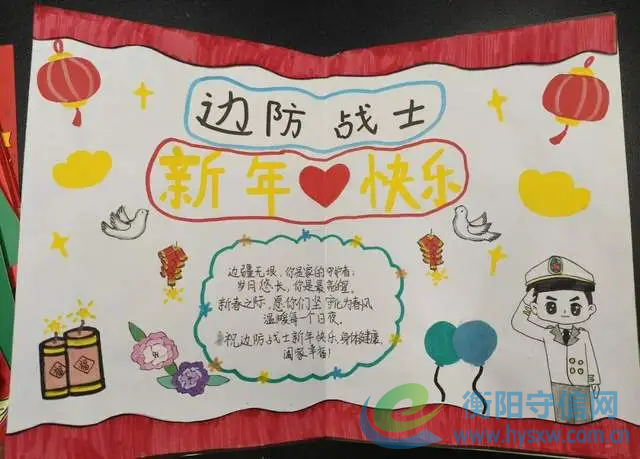 边防战士
新年快乐
边疆无垠，你是家的守护者；
岁月悠长，你是最亮的星。
新春之际，愿你们坚守化为春风
温暖每一个日夜。
祝边防战士新年快乐，身体健康，
阖家幸福！
福
福
衡阳守信网
www.hysxw.com.cn